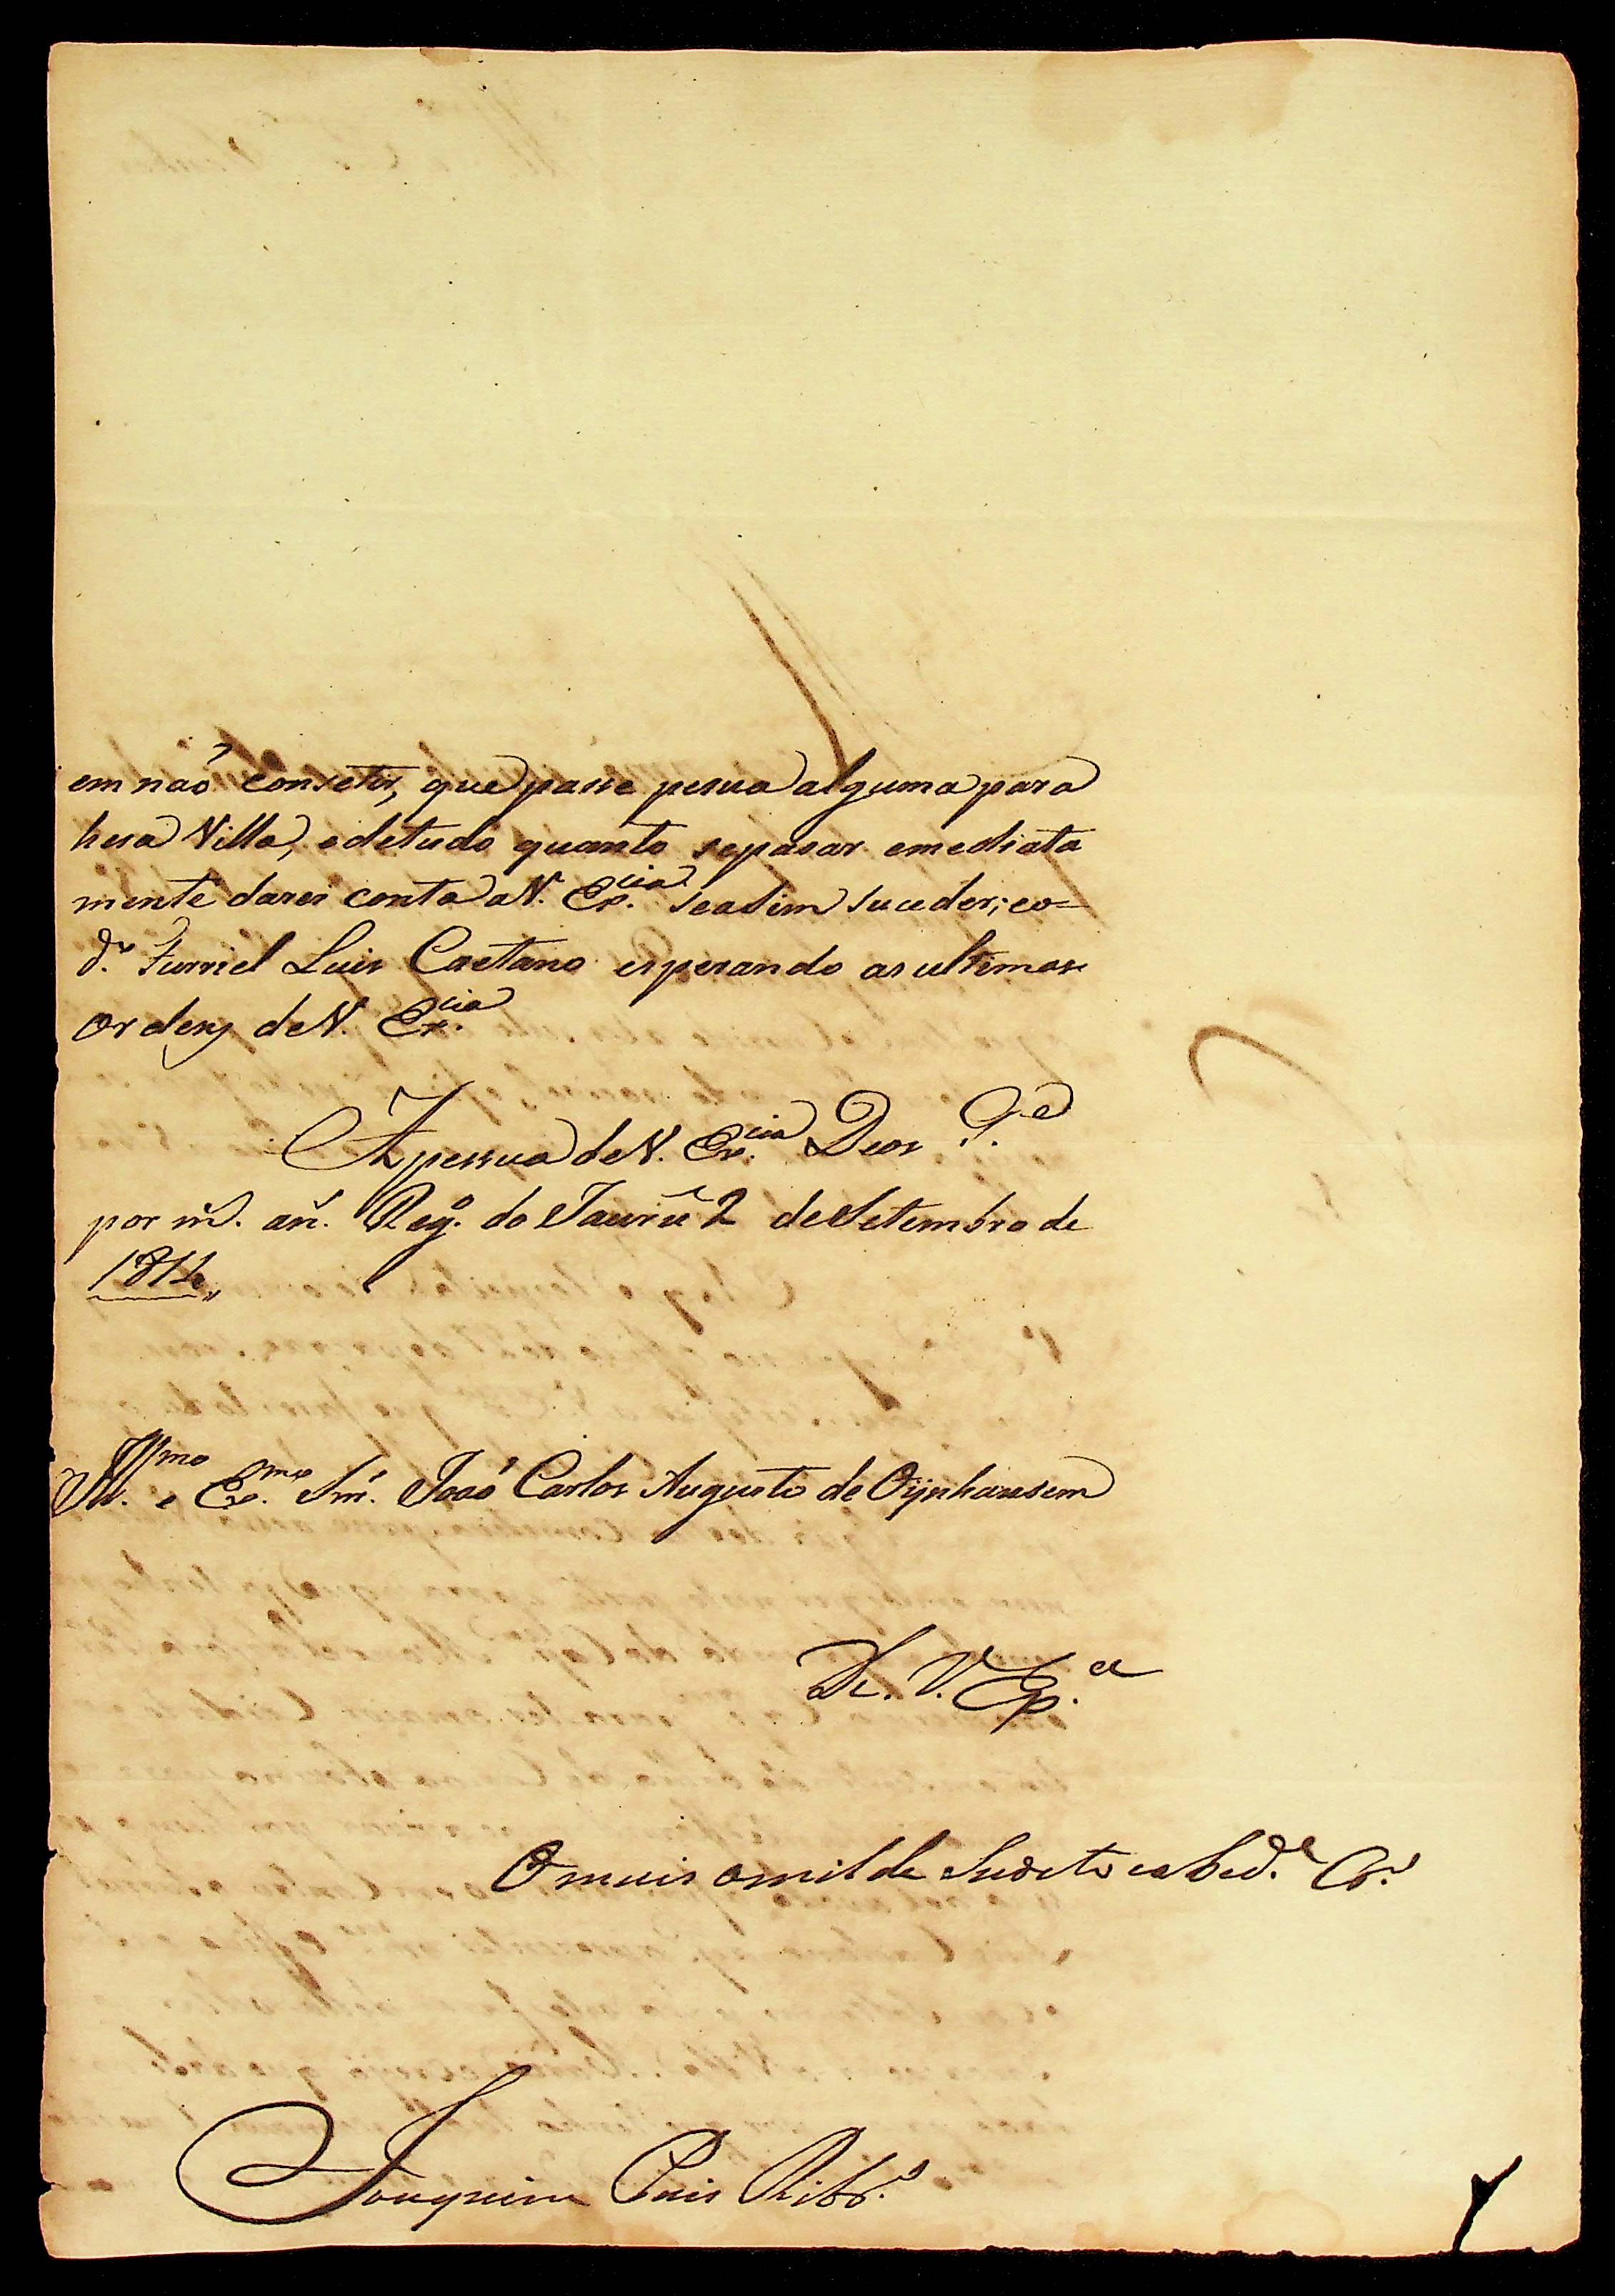 em naõ consetir, que passe pesua alguma para
hesa Villa, e de tudo quanto se pasar emediata
mente darei conta a V. Ex.cia se asim suceder; e o
d.o Furriel Luis Caetano esperando as ultimas
Ordens de V. Ex.cia
A pessua de V. Ex.cia Deos G.e
por m.s an.s Reg.o do Jaurú 2 de Setembro de
1814
Ill.mo e Ex.mo Snr. Joaõ Carlos Augusto de Oijnhausem
De V. Ex.a
O mais omilde Sudito e obed.e Cr.o
Joaquim Pais Ribr.o